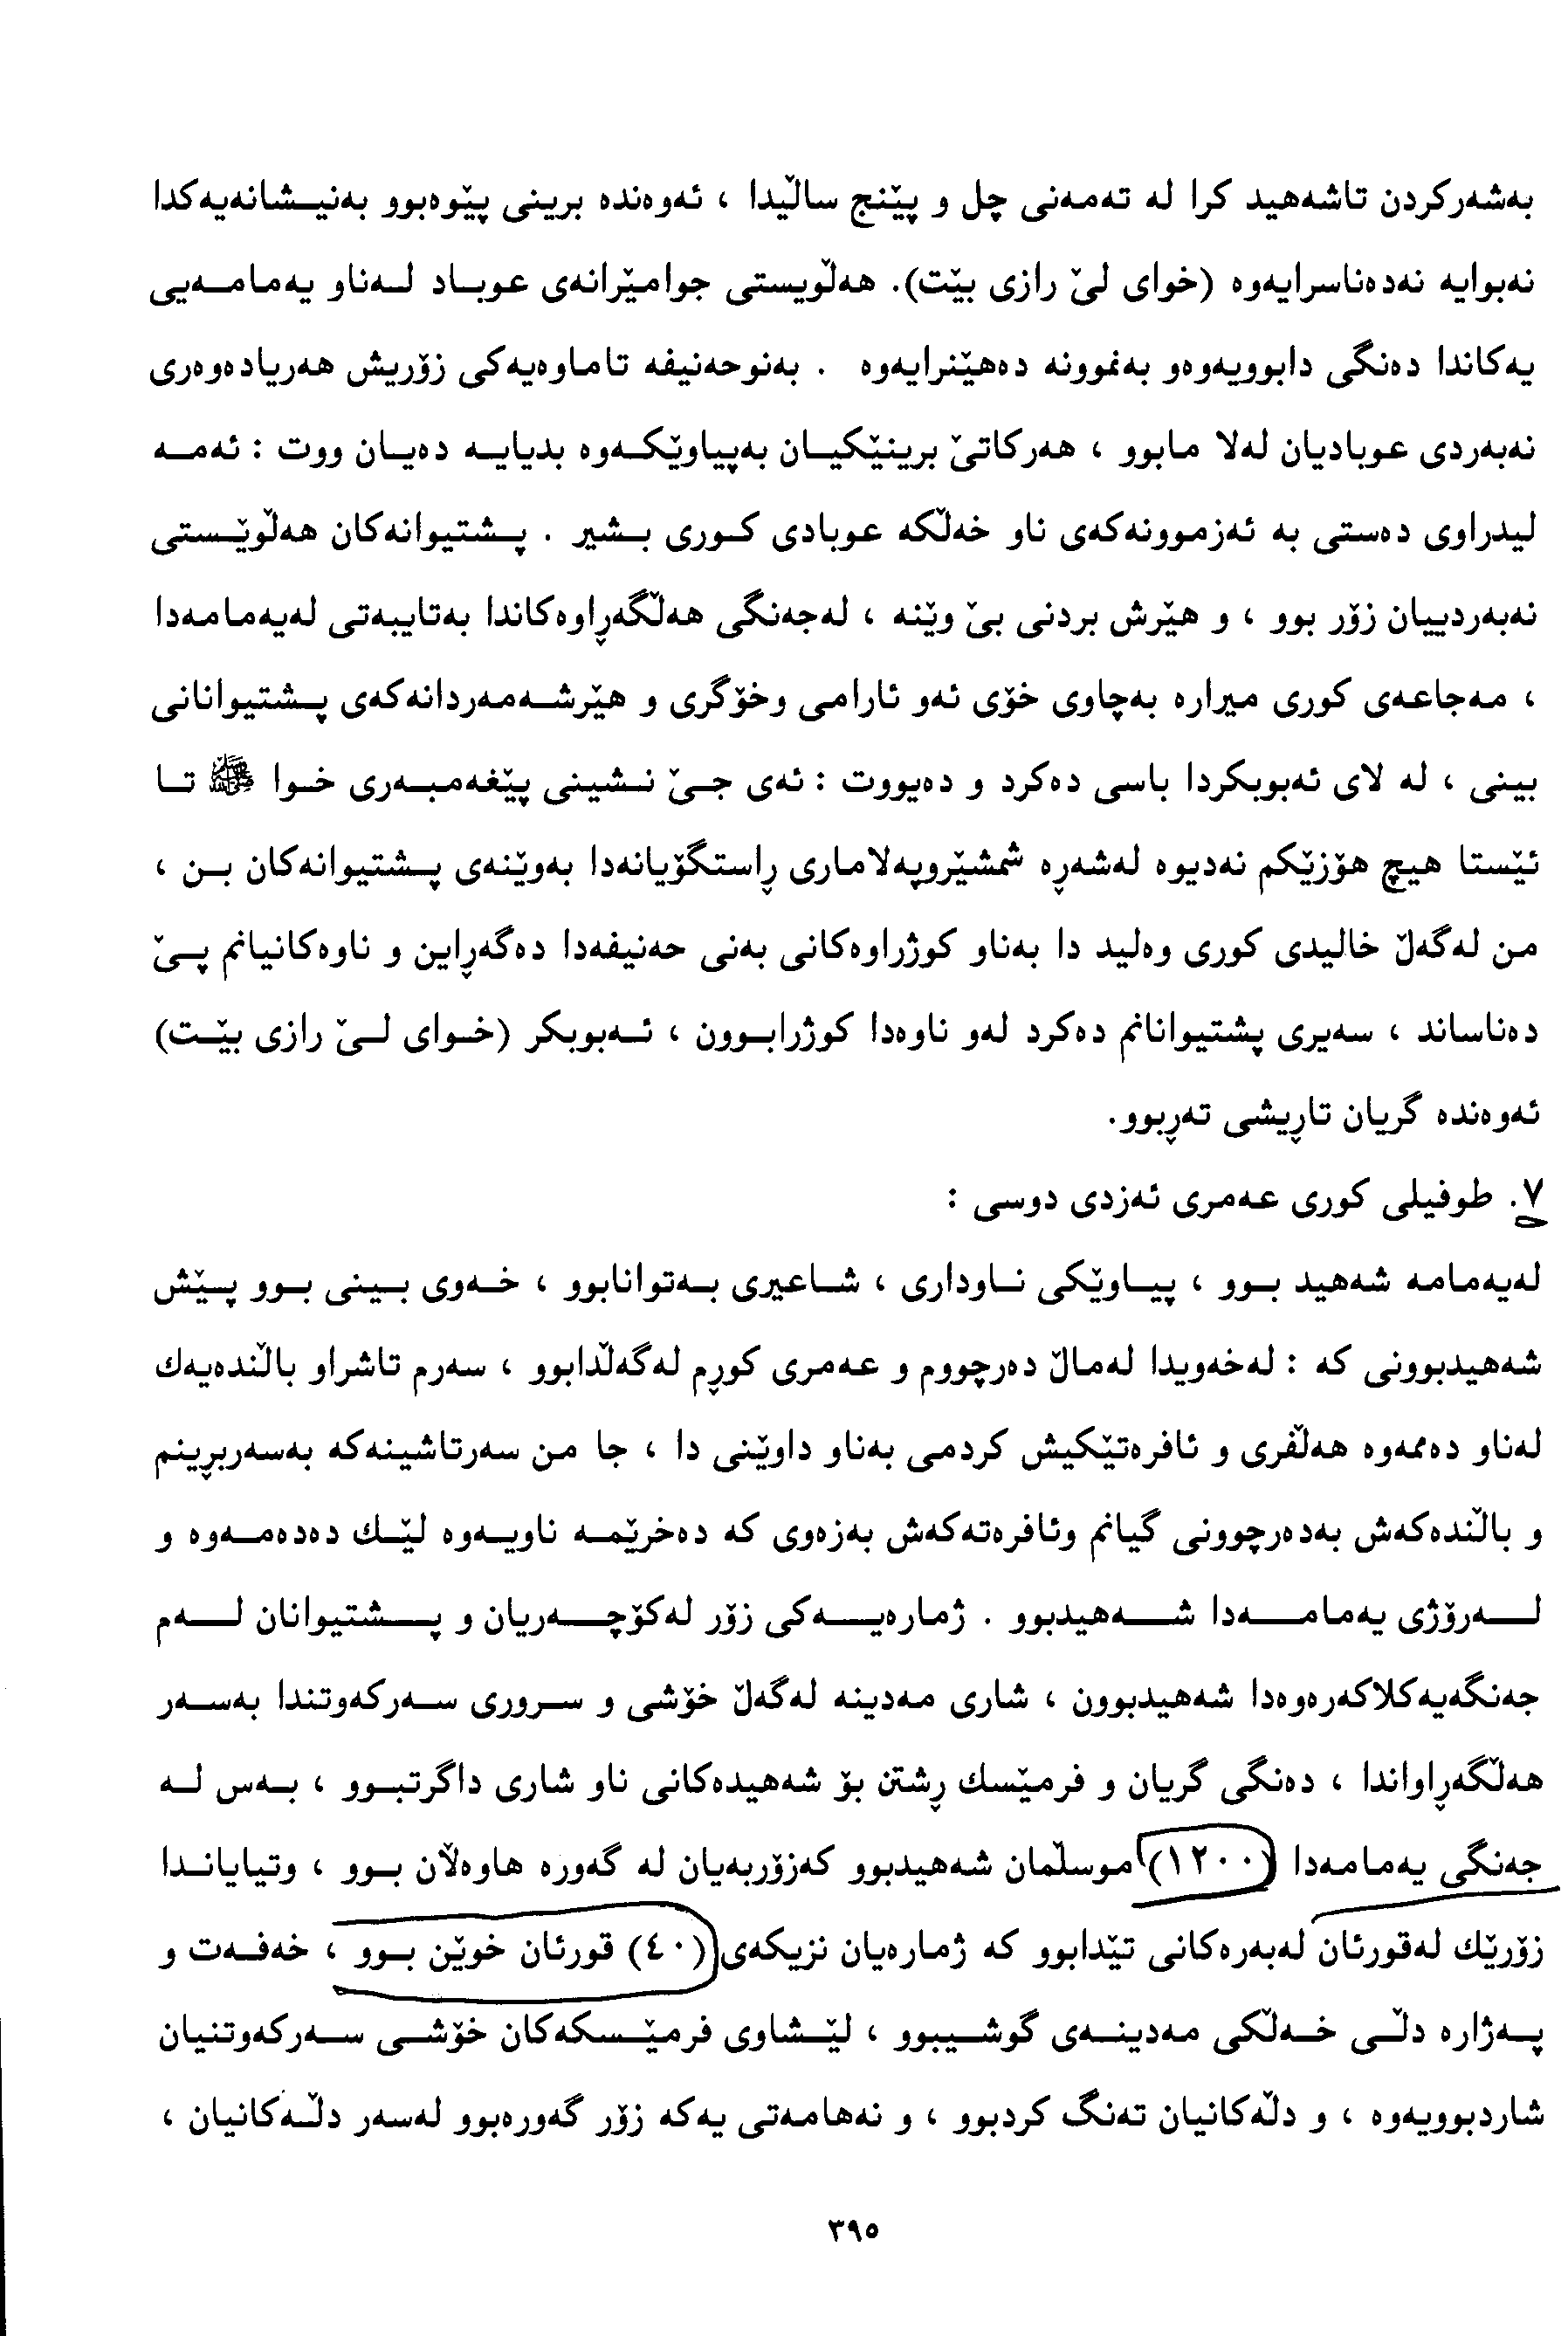 بەشەركردن تاشەهید كرا لە تەمەنی چل و پێنج ساڵیدا ، ئەوەندە برینی پێوەبوو بەنیشانەیەكدا
نەبوایە نەدەناسرایەوە (خوای لێ رازی بێت). هەڵویستی جوامێرانەی عوباد لەناو یەمامەیی
یەكاندا دەنگی دابوویەوەو بەنموونە دەهێنرایەوە . بەنوحەنیفە تاماوەیەكی زۆریش هەریادەوەری
نەبەردی عوبادیان لەلا مابوو ، هەركاتێ برینێكیان بەپیاوێكەوە بدیایە دەیان ووت : ئەمە
لیدراوی دەستی بە ئەزموونەكەی ناو خەڵكە عوبادی كوری بشیر . پشتیوانەكان هەڵوێستی
نەبەردییان زۆر بوو ، و هێرش بردنی بێ وێنە ، لەجەنگی هەڵگەڕاوەكاندا بەتایبەتی لەیەمامەدا
، مەجاعەی كوری میرارە بەچاوی خۆی ئەو ئارامی وخۆگری و هێرشەمەردانەكەی پشتیوانانی
بینی ، لە لای ئەبوبكردا باسی دەكرد و دەیووت : ئەی جێ نشینی پێغەمبەری خوا ﷺ تا
ئێستا هیچ هۆزێكم نەدیوە لەشەڕە شمشێروپەلاماری ڕاستگۆیانەدا بەوێنەی پشتیوانەكان بن ،
من لەگەڵ خالیدی كوری وەلید دا بەناو كوژراوەكانی بەنی حەنیفەدا دەگەڕاین و ناوەكانیانم پێ
دەناساند ، سەیری پشتیوانانم دەكرد لەو ناوەدا كوژرابوون ، ئەبوبكر (خوای لێ رازی بێت)
ئەوەندە گریان تاڕیشی تەڕبوو.
٧. طوفیلی كوری عەمری ئەزدی دوسی :
لەیەمامە شەهید بوو ، پیاوێكی ناوداری ، شاعیری بەتوانابوو ، خەوی بینی بوو پێش
شەهیدبوونی كە : لەخەویدا لەماڵ دەرچووم و عەمری كوڕم لەگەڵدابوو ، سەرم تاشراو باڵندەیەك
لەناو دەممەوە هەڵفری و ئافرەتێكیش كردمی بەناو داوێنی دا ، جا من سەرتاشینەكە بەسەربڕینم
و باڵندەكەش بەدەرچوونی گیانم وئافرەتەكەش بەزەوی كە دەخرێمە ناویەوە لێك دەدەمەوە و
لەرۆژی یەمامەدا شەهیدبوو . ژمارەیەكی زۆر لەكۆچەریان و پشتیوانان لەم
جەنگەیەكلاكەرەوەدا شەهیدبوون ، شاری مەدینە لەگەڵ خۆشی و سروری سەركەوتندا بەسەر
هەڵگەڕاواندا ، دەنگی گریان و فرمێسك ڕشتن بۆ شەهیدەكانی ناو شاری داگرتبوو ، بەس لە
جەنگی یەمامەدا (١٢٠٠) موسڵمان شەهیدبوو كەزۆربەیان لە گەورە هاوەڵان بوو ، وتیایاندا
زۆرێك لەقورئان لەبەرەكانی تێدابوو كە ژمارەیان نزیكەی (٤٠) قورئان خوێن بوو ، خەفەت و
پەژارە دڵی خەڵكی مەدینەی گوشیبوو ، لێشاوی فرمێسكەكان خۆشی سەركەوتنیان
شاردبوویەوە ، و دڵەكانیان تەنگ كردبوو ، و نەهامەتی یەكە زۆر گەورەبوو لەسەر دڵەكانیان ،
٣٩٥